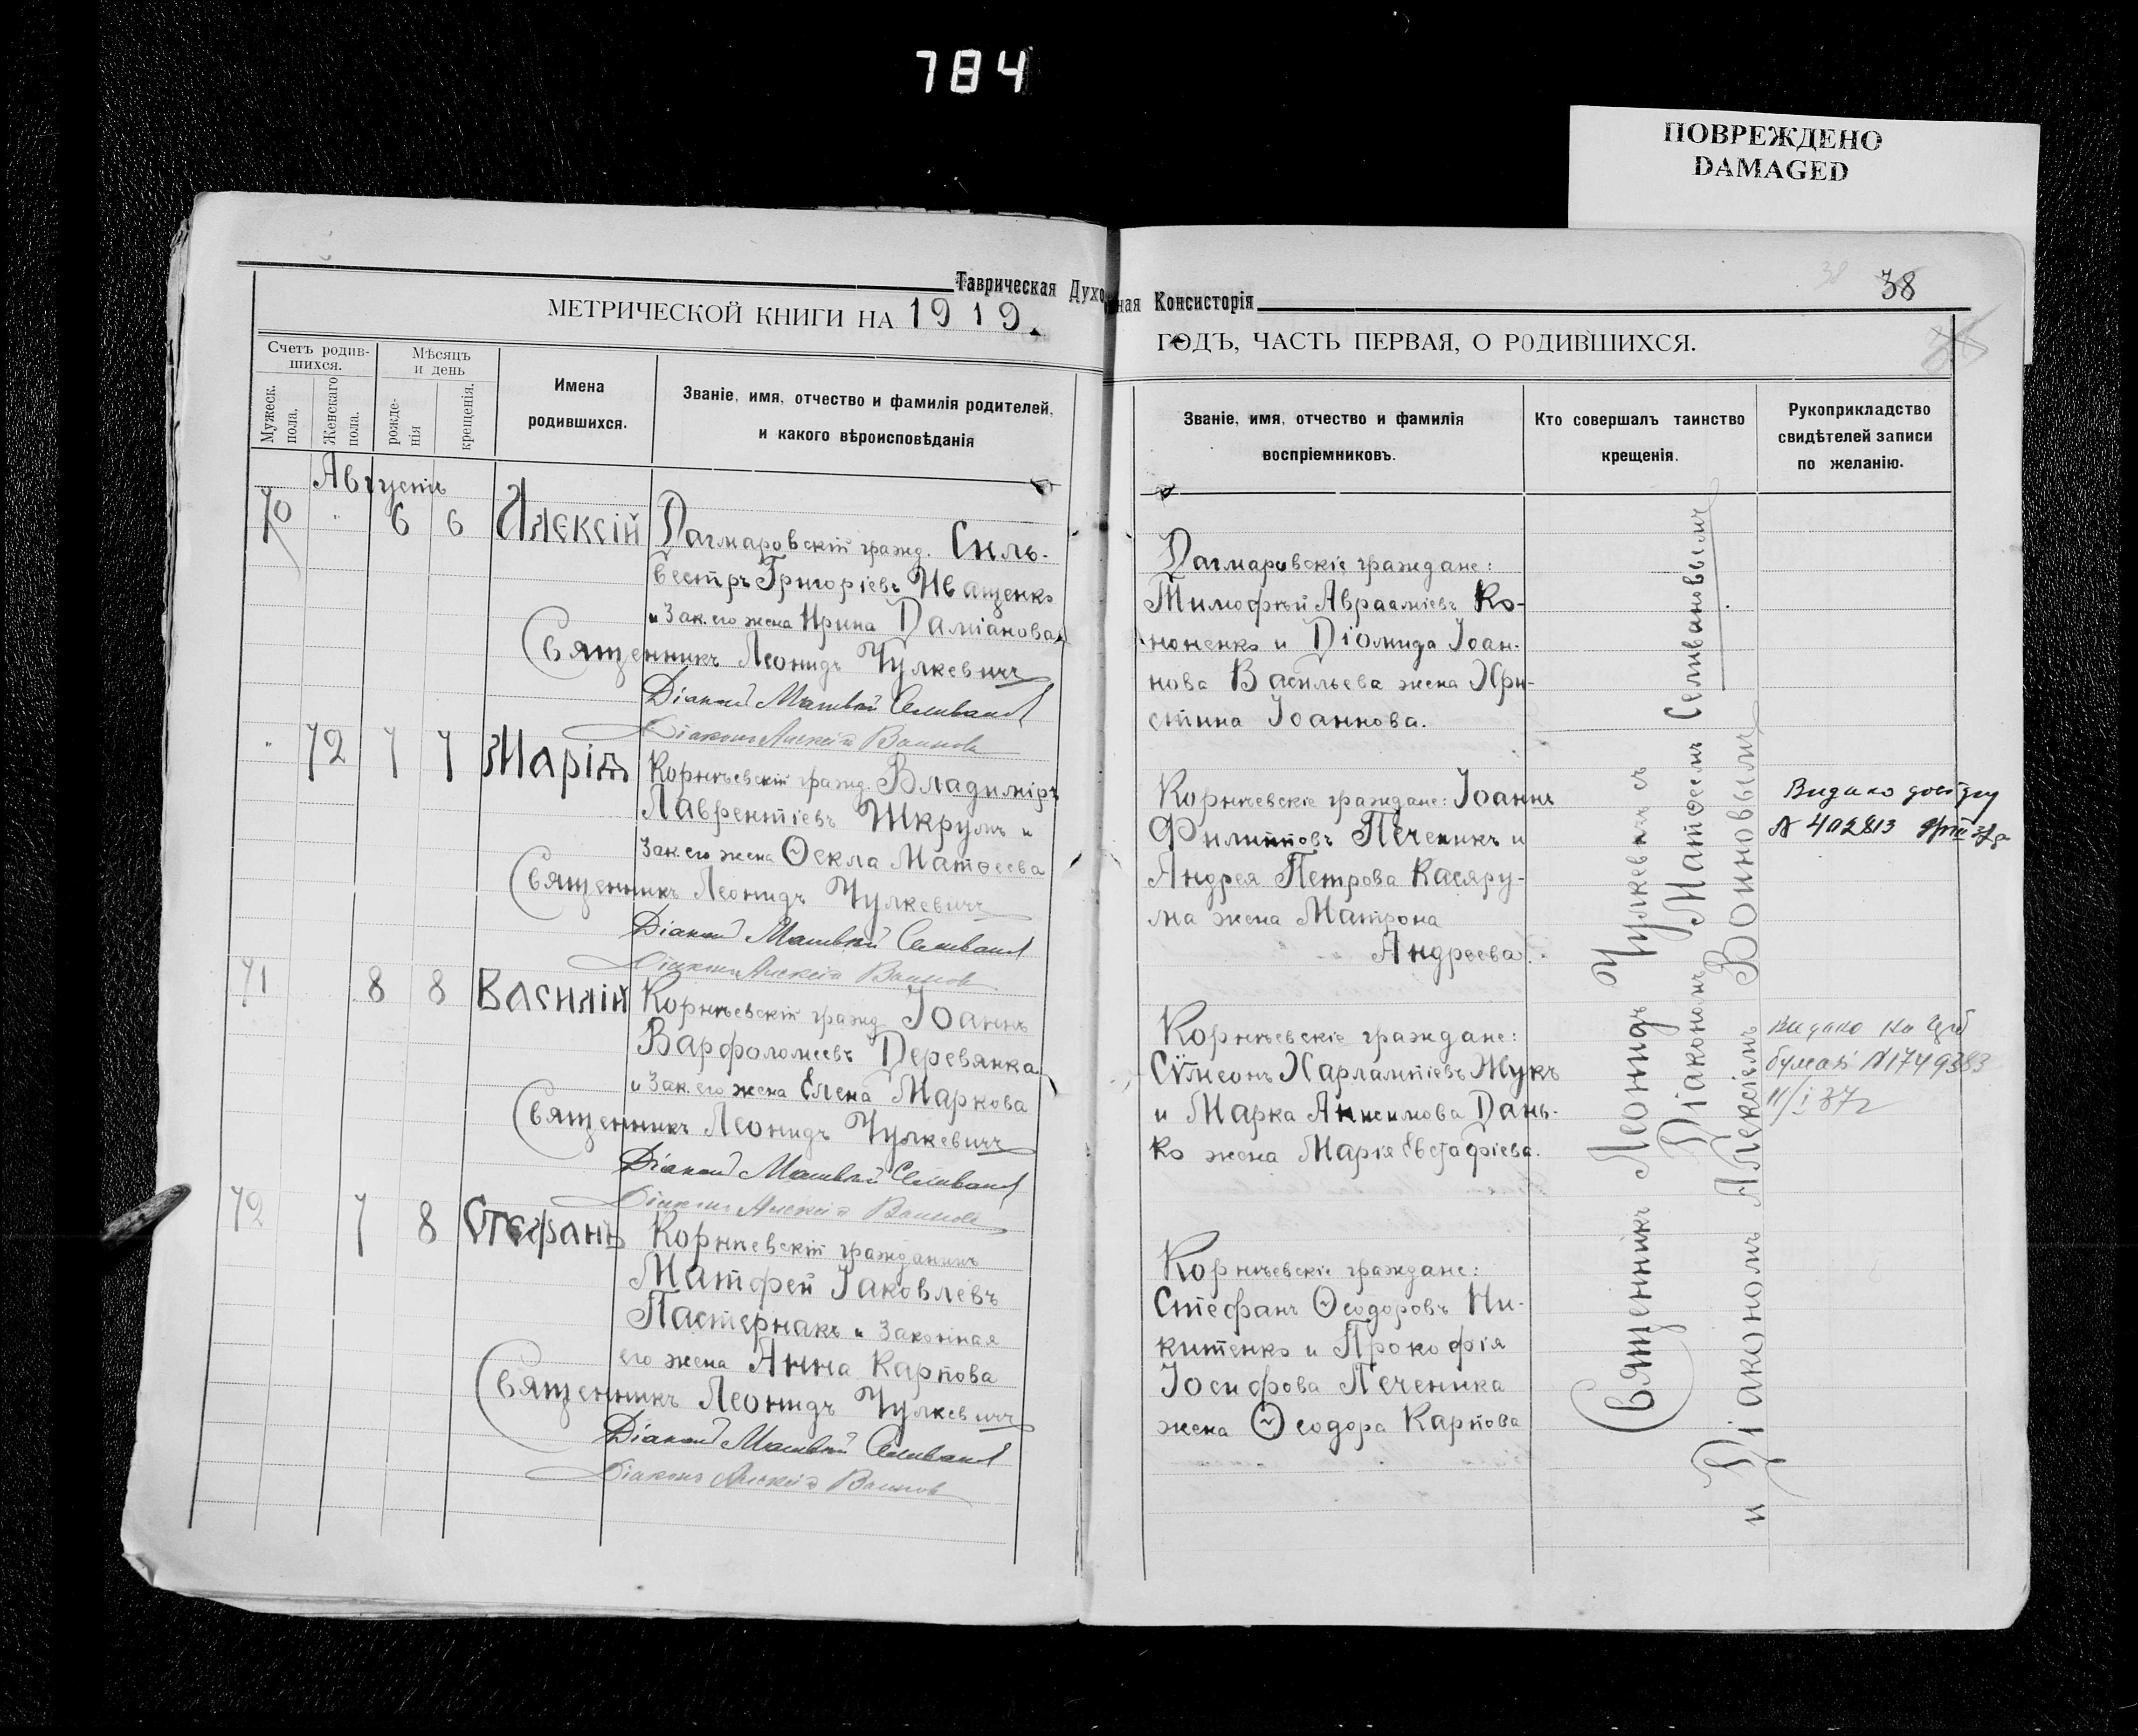 784
ПОВРЕЖДЕНО
DAMAGED
Таврическая Духовная Консисторія
38
38
МЕТРИЧЕСКОЙ КНИГИ НА 1919.
ГОДЪ, ЧАСТЬ ПЕРВАЯ, О РОДИВШИХСЯ.
Счетъ родив-
шихся.
Мужеск.
пола.
Женскаго
пола.
Мѣсяцъ
и день
рожде-
нія
крещенія.
Имена
родившихся.
Званіе, имя, отчество и фамилія родителей,
и какого вѣроисповѣданія
Званіе, имя, отчество и фамилія
воспріемниковъ.
Кто совершалъ таинство
крещенія.
Рукоприкладство
свидѣтелей записи
по желанію.
Августъ
70 " 6 6 Алексій
Дагмаровскій гражд. Силь-
вестръ Григоріевъ Иващенко
и зак. его жена Ирина Даміанова
Священникъ Леонидъ Чулкевичъ
Діаконъ Матвѣй Селивановъ
Діаконъ Алексій Воиновъ
Дагмаровскіе граждане:
Тимофѣй Авраамиевъ Ко-
ноненко и Діомида Іоан-
нова Васильева жена Хри-
стина Іоаннова.
" 72 7 7 Марія
Корнѣевскій гражд. Владиміръ
Лаврентіевъ Шкрумъ и
зак. его жена Ѳекла Матѳеева
Священникъ Леонидъ Чулкевичъ
Діаконъ Матвѣй Селивановъ
Діаконъ Алексій Воиновъ
Корнѣевскіе граждане: Іоаннъ
Филипповъ Печеникъ и
Андрея Петрова Касяру-
ма жена Матрона
Андреева.
Видано
№ 402813
71 8 8 Василій
Корнѣевскій гражд. Іоаннъ
Варфоломеевъ Деревянка
и зак. его жена Елена Маркова
Священникъ Леонидъ Чулкевичъ
Діаконъ Матвѣй Селивановъ
Діаконъ Алексій Воиновъ
Корнѣевскіе граждане:
Сѵмеонъ Харлампіевъ Жукъ
и Марка Анисимова Дань-
ко жена Марія Евстафіева.
видано на
бумазі №1749383
11/I 37г
72 7 8 Стефанъ
Корнѣевскій гражданинъ
Матфей Іаковлевъ
Пастернакъ и законная
его жена Анна Карпова
Священникъ Леонидъ Чулкевичъ
Діаконъ Матвѣй Селивановъ
Діаконъ Алексій Воиновъ
Корнѣевскіе граждане:
Стефанъ Ѳеодоровъ Ни-
китенко и Прокофія
Іосифова Печеника
жена Ѳеодора Карпова
Священникъ Леонидъ Чулкевичъ съ
Діакономъ Матѳеемъ Селивановымъ
и Діакономъ Алексіемъ Воиновымъ